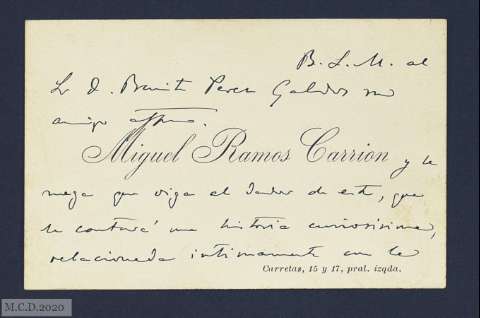 B. L. M. al
Sr D. Benito Perez Galdos su
amigo affmo.
Miguel Ramos Carrion y le
ruega que oiga al dador de esta, que
le contará una historia curiosisima,
relacionada intimamente con la
Carretas, 15 y 17, pral. izqda.
M.C.D.2020